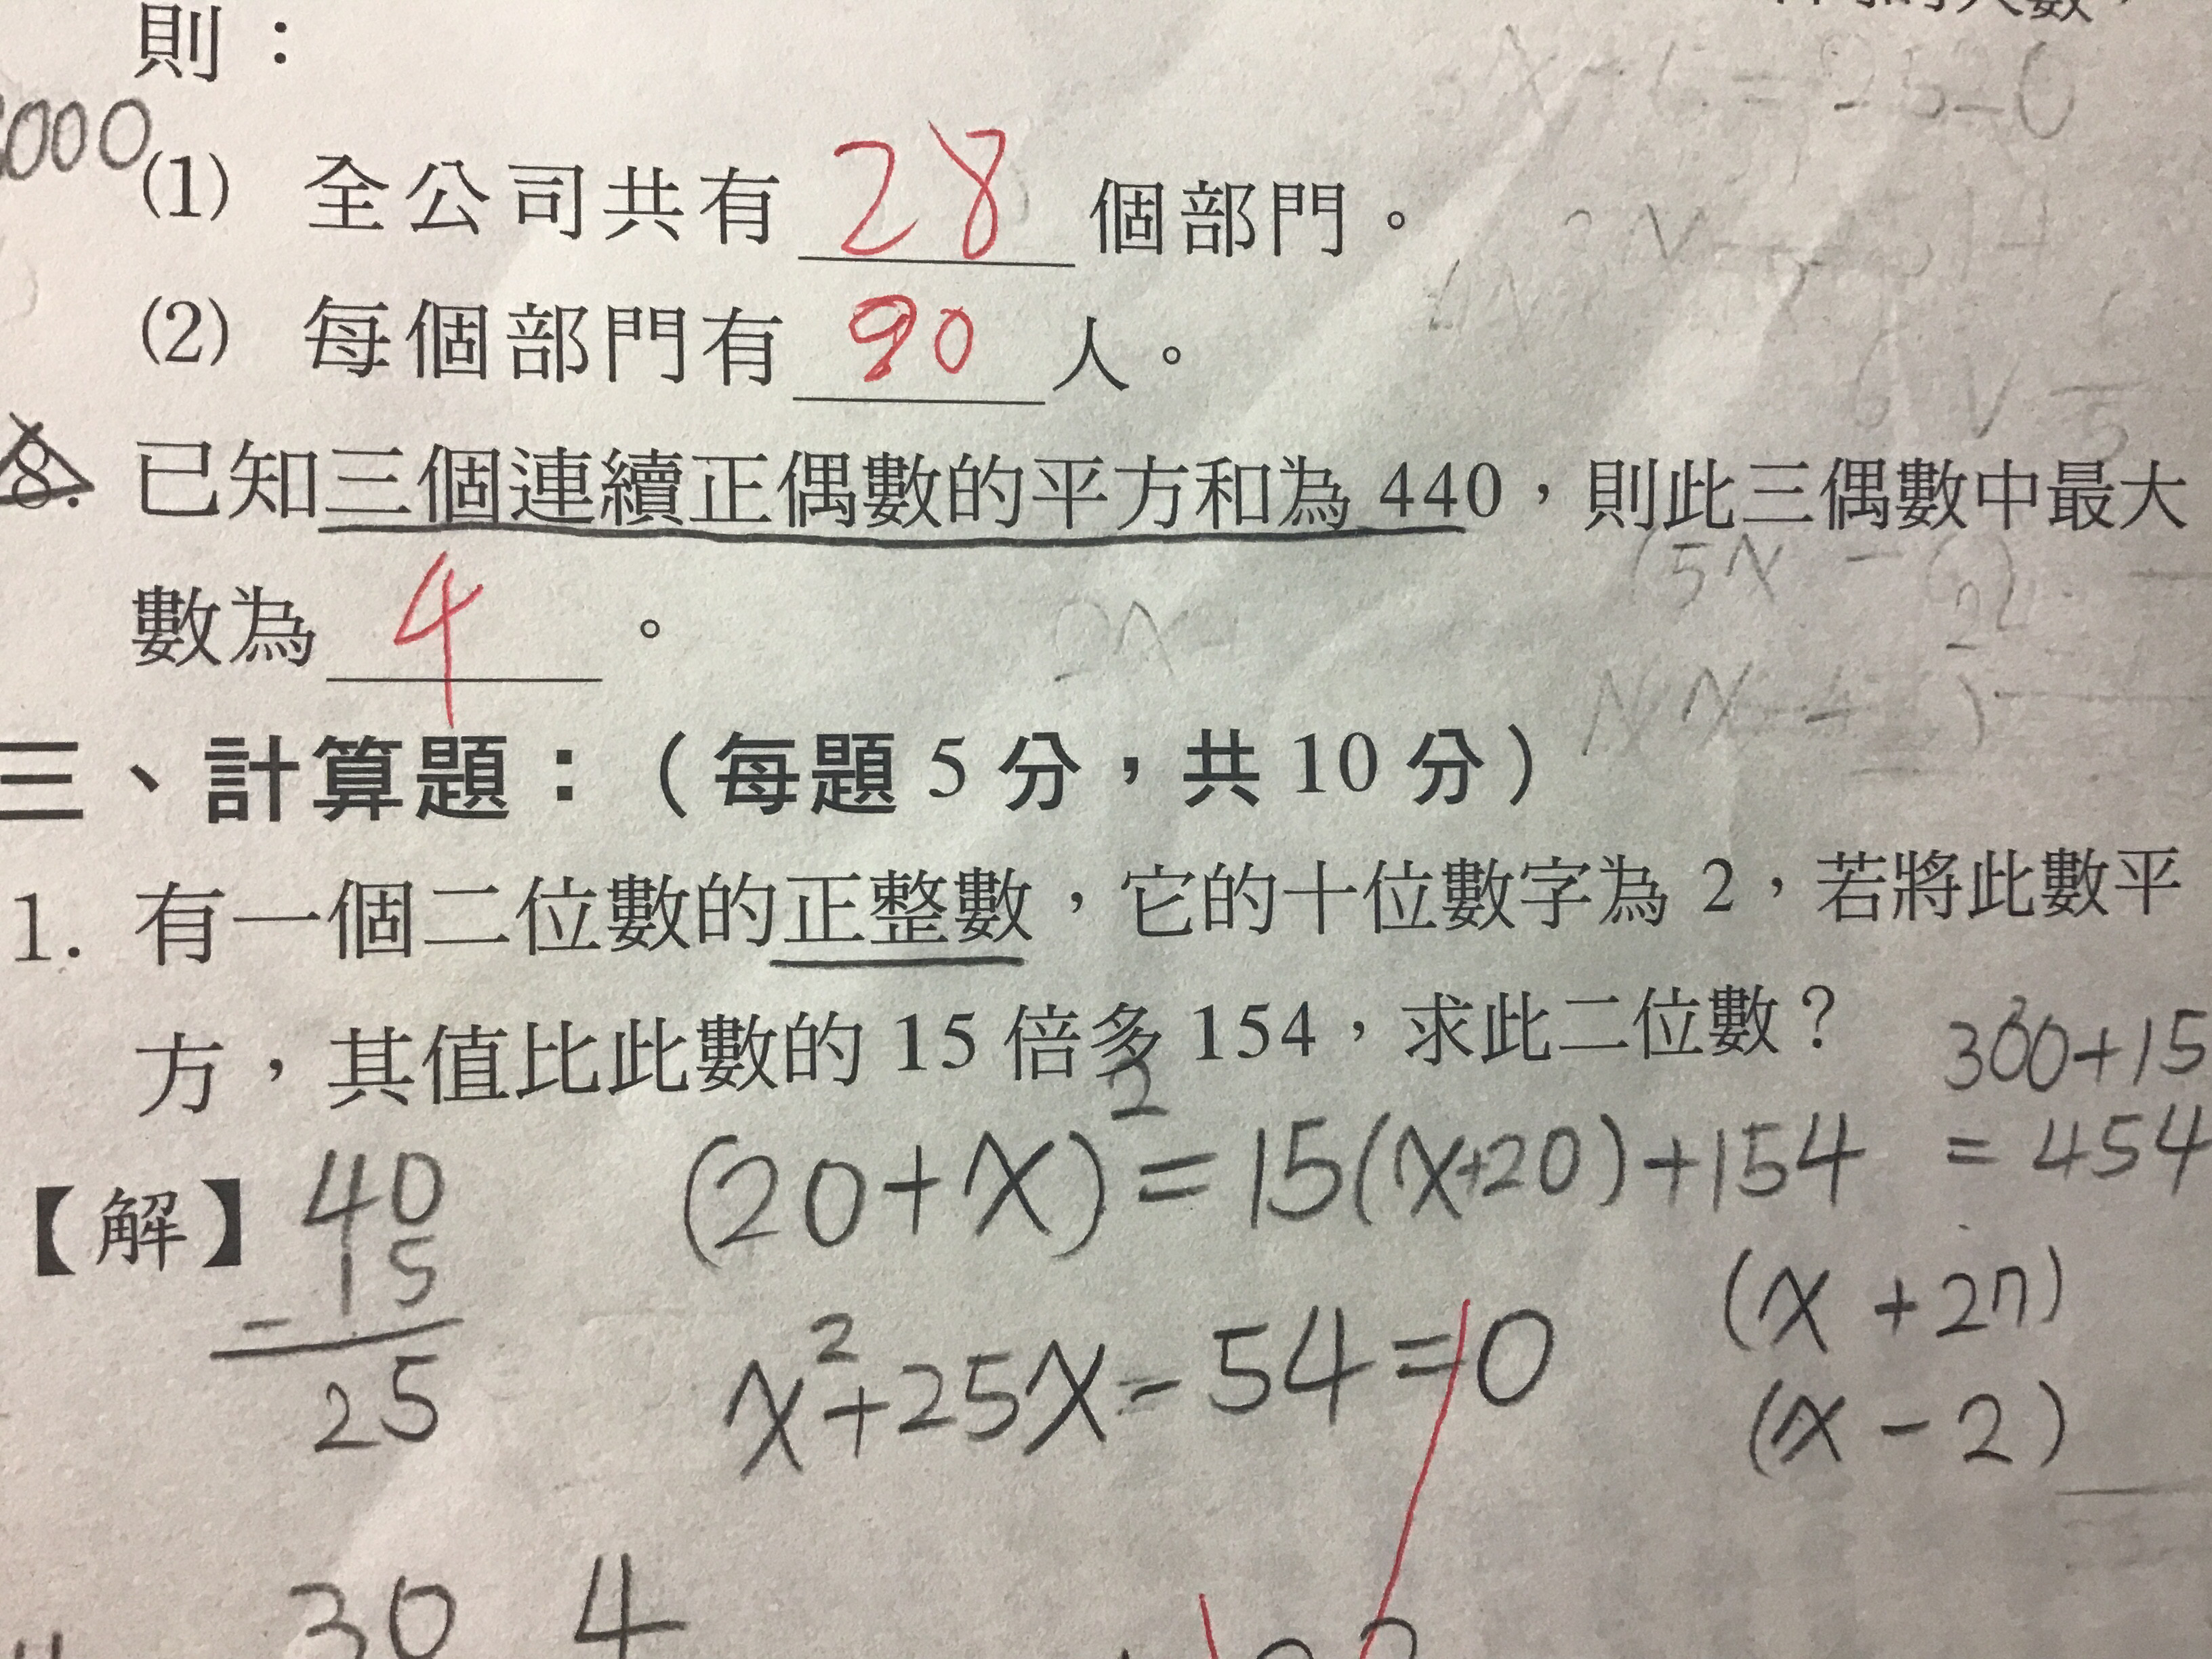 則：
000
(1) 全公司共有 28 個部門。
(2) 每個部門有 90 人。
8. 已知三個連續正偶數的平方和為 440，則此三偶數中最大
數為 4 。
三、計算題：（每題 5 分，共 10 分）
1. 有一個二位數的正整數，它的十位數字為 2，若將此數平
方，其值比此數的 15 倍多 154，求此二位數？
300+15
= 454
【解】
40
- 15
25
(20+x)²=15(x+20)+154
x²+25x-54=0
(x+27)
(x-2)
30 4